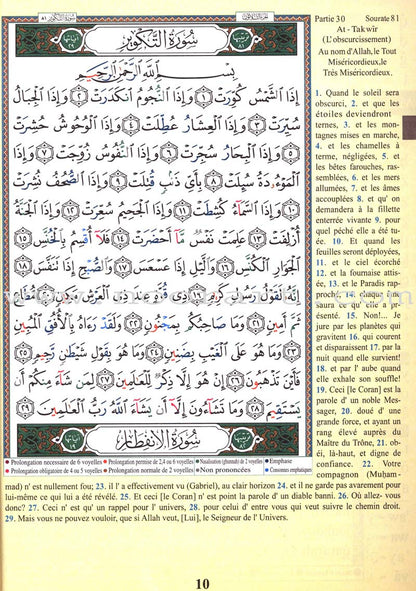 سورة التكوير
بِسْمِ اللَّهِ الرَّحْمَٰنِ الرَّحِيمِ
إِذَا الشَّمْسُ كُوِّرَتْ ١ وَإِذَا النُّجُومُ انكَدَرَتْ ٢ وَإِذَا الْجِبَالُ
سُيِّرَتْ ٣ وَإِذَا الْعِشَارُ عُطِّلَتْ ٤ وَإِذَا الْوُحُوشُ حُشِرَتْ
٥ وَإِذَا الْبِحَارُ سُجِّرَتْ ٦ وَإِذَا النُّفُوسُ زُوِّجَتْ ٧ وَإِذَا
الْمَوْءُۥدَةُ سُئِلَتْ ٨ بِأَيِّ ذَنبٍ قُتِلَتْ ٩ وَإِذَا الصُّحُفُ نُشِرَتْ
١٠ وَإِذَا السَّمَاءُ كُشِطَتْ ١١ وَإِذَا الْجَحِيمُ سُعِّرَتْ ١٢ وَإِذَا الْجَنَّةُ
أُزْلِفَتْ ١٣ عَلِمَتْ نَفْسٌ مَّا أَحْضَرَتْ ١٤ فَلَا أُقْسِمُ بِالْخُنَّسِ ١٥
الْجَوَارِ الْكُنَّسِ ١٦ وَاللَّيْلِ إِذَا عَسْعَسَ ١٧ وَالصُّبْحِ إِذَا تَنَفَّسَ ١٨
إِنَّهُ لَقَوْلُ رَسُولٍ كَرِيمٍ ١٩ ذِي قُوَّةٍ عِندَ ذِي الْعَرْشِ مَكِينٍ ٢٠ مُّطَاعٍ
ثَمَّ أَمِينٍ ٢١ وَمَا صَاحِبُكُم بِمَجْنُونٍ ٢٢ وَلَقَدْ رَآهُ بِالْأُفُقِ الْمُبِينِ
٢٣ وَمَا هُوَ عَلَى الْغَيْبِ بِضَنِينٍ ٢٤ وَمَا هُوَ بِقَوْلِ شَيْطَٰنٍ رَّجِيمٍ ٢٥
فَأَيْنَ تَذْهَبُونَ ٢٦ إِنْ هُوَ إِلَّا ذِكْرٌ لِّلْعَٰلَمِينَ ٢٧ لِمَن شَاءَ مِنكُمْ أَن
يَسْتَقِيمَ ٢٨ وَمَا تَشَاءُونَ إِلَّا أَن يَشَاءَ اللَّهُ رَبُّ الْعَٰلَمِينَ ٢٩
سورة الانفطار
Partie 30 Sourate 81
At - Takwîr
(L'obscurcissement)
Au nom d'Allah, le Tout
Miséricordieux, le
Très Miséricordieux.
1. Quand le soleil sera
obscurci, 2. et que les
étoiles deviendront
ternes, 3. et les mon-
tagnes mises en marche,
4. et les chamelles à
terme, négligées, 5. et
les bêtes farouches, ras-
semblées, 6. et les mers
allumées, 7. et les âmes
accouplées 8. et qu' on
demandera à la fillette
enterrée vivante 9. pour
quel péché elle a été tu-
ée. 10. Et quand les
feuilles seront déployées,
11. et le ciel écorché
12. et la fournaise attis-
ée, 13. et le Paradis rap-
proché, 14. chaque âme
saura ce qu' elle a pré-
senté. 15. Non!... Je
jure par les planètes qui
gravitent 16. qui courent
et disparaissent 17. par la
nuit quand elle survient!
18. et par l' aube quand
elle exhale son souffle!
19. Ceci [le Coran] est la
parole d' un noble Mes-
sager, 20. doué d' une
grande force, et ayant un
rang élevé auprès du
Maître du Trône, 21. ob-
éi, là-haut, et digne de
confiance. 22. Votre
compagnon (Muḥam-
mad) n' est nullement fou; 23. il l' a effectivement vu (Gabriel), au clair horizon 24. et il ne garde pas avarement pour
lui-même ce qui lui a été révélé. 25. Et ceci [le Coran] n' est point la parole d' un diable banni. 26. Où allez- vous
donc? 27. Ceci n' est qu' un rappel pour l' univers, 28. pour celui d' entre vous qui veut suivre le chemin droit.
29. Mais vous ne pouvez vouloir, que si Allah veut, [Lui], le Seigneur de l' Univers.
Prolongation necessaire de 6 voyelles Prolongation permise de 2,4 ou 6 voyelles Nasalisation (ghunnah) de 2 voyelles Emphase
Prolongation obligatoire de 4 ou 5 voyelles Prolongation normale de 2 voyelles Non prononcées Consonnes emphatiques
10